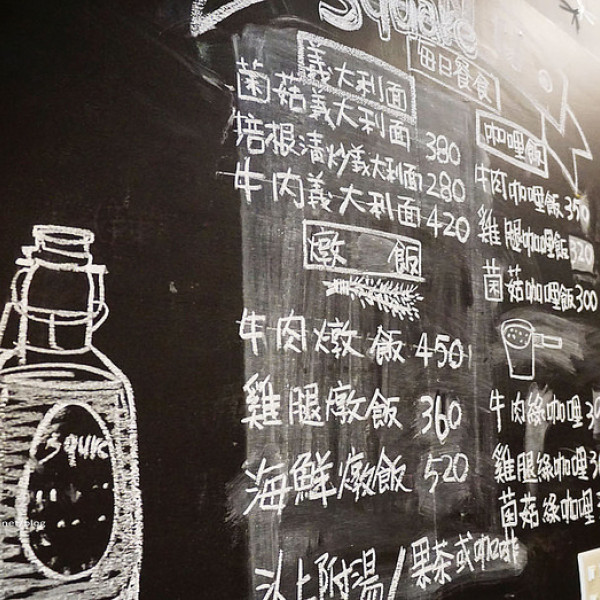 Square
每日餐食
義大利面
菌菇義大利面 380
培根清炒義大利面 280
牛肉義大利面 420
燉飯
牛肉燉飯 450
雞腿燉飯 360
海鮮燉飯 520
以上附湯/果茶或咖啡
咖哩飯
牛肉咖哩飯 350
雞腿咖哩飯 320
菌菇咖哩飯 300
牛肉綠咖哩
雞腿綠咖哩
菌菇綠咖哩